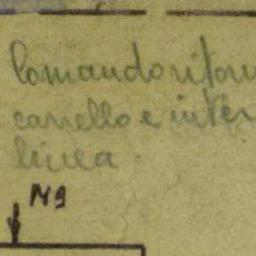 Comando ritorn
carrello e inter
linea
N9